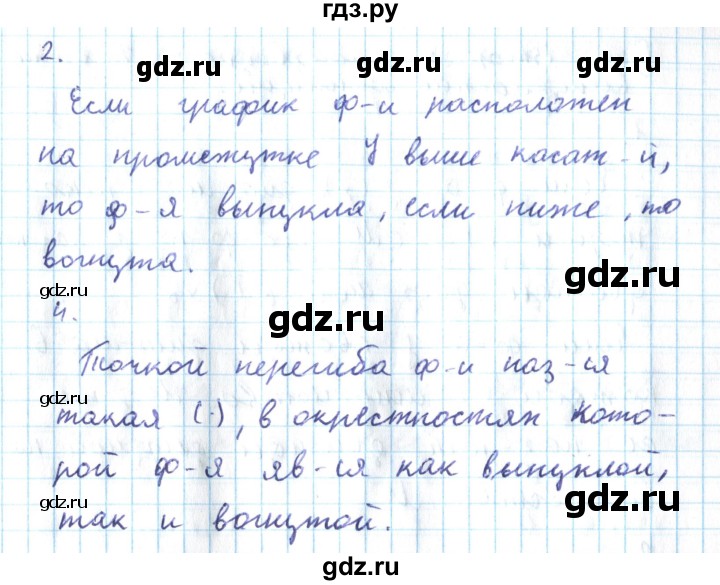 гдз.ру
2.
gdz.ru gdz.ru
Если график ф-и расположен
на промежутке У выше касат-й,
то ф-я выпукла, если ниже, то
вогнута.
gdz.ru gdz.ru
4.
gdz.ru
Точкой перегиба ф-и наз-ся
gdz.ru
такая (·), в окрестностях кото-
рой ф-я яв-ся как выпуклой,
gdz.ru gdz.ru
так и вогнутой.
gdz.ru